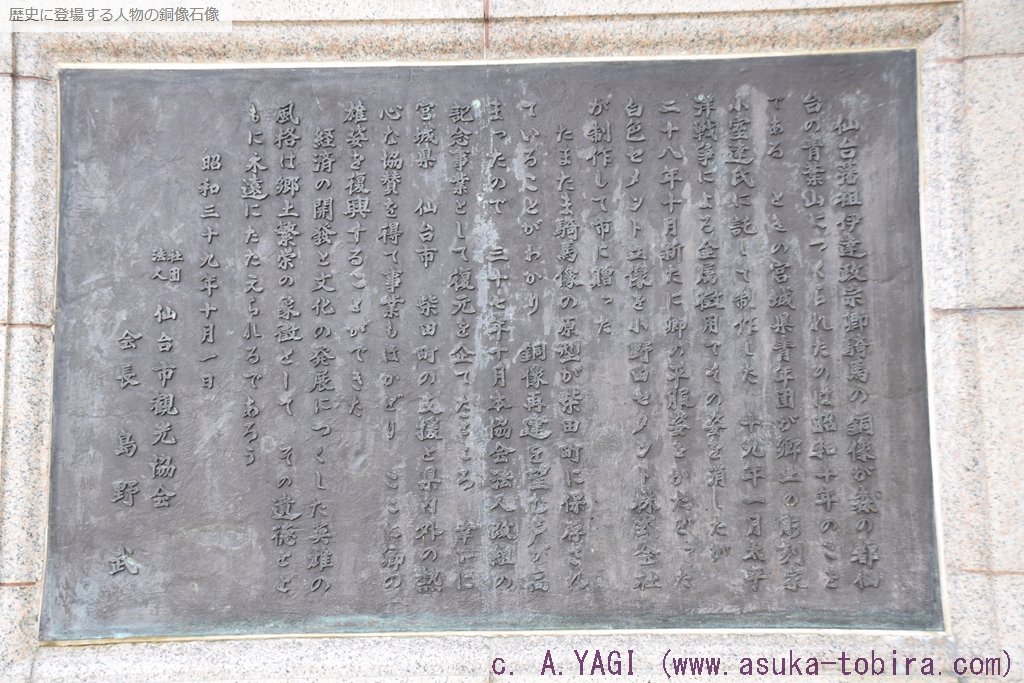 歴史に登場する人物の銅像石像
仙台藩祖伊達政宗卿騎馬の銅像が森の都仙
台の青葉山につくられたのは昭和十年のこと
である ときの宮城県青年団が郷土の彫刻家
小室達氏に託して制作した 十九年一月太平
洋戦争による金属徴用でその姿を消したが
二十八年十月新たに卿の平服姿をかたどった
白色セメント立像を小野田セメント株式会社
が制作して市に贈った
たまたま騎馬像の原型が柴田町に保存され
ていることがわかり 銅像再建を望む声が高
まったので 三十七年十月本協会法人改組の
記念事業として復元を企てたところ 幸いに
宮城県 仙台市 柴田町の支援と県内外の熱
心な協賛を得て事業もはかどり ここに卿の
雄姿を復興することができた
経済の開發と文化の発展につくした英雄の
風格は郷土繁栄の象徴として その遺徳とと
もに永遠にたたえられるであろう
昭和三十九年十月一日
社団法人 仙台市観光協会
会長 島野 武
c. A.YAGI (www.asuka-tobira.com)